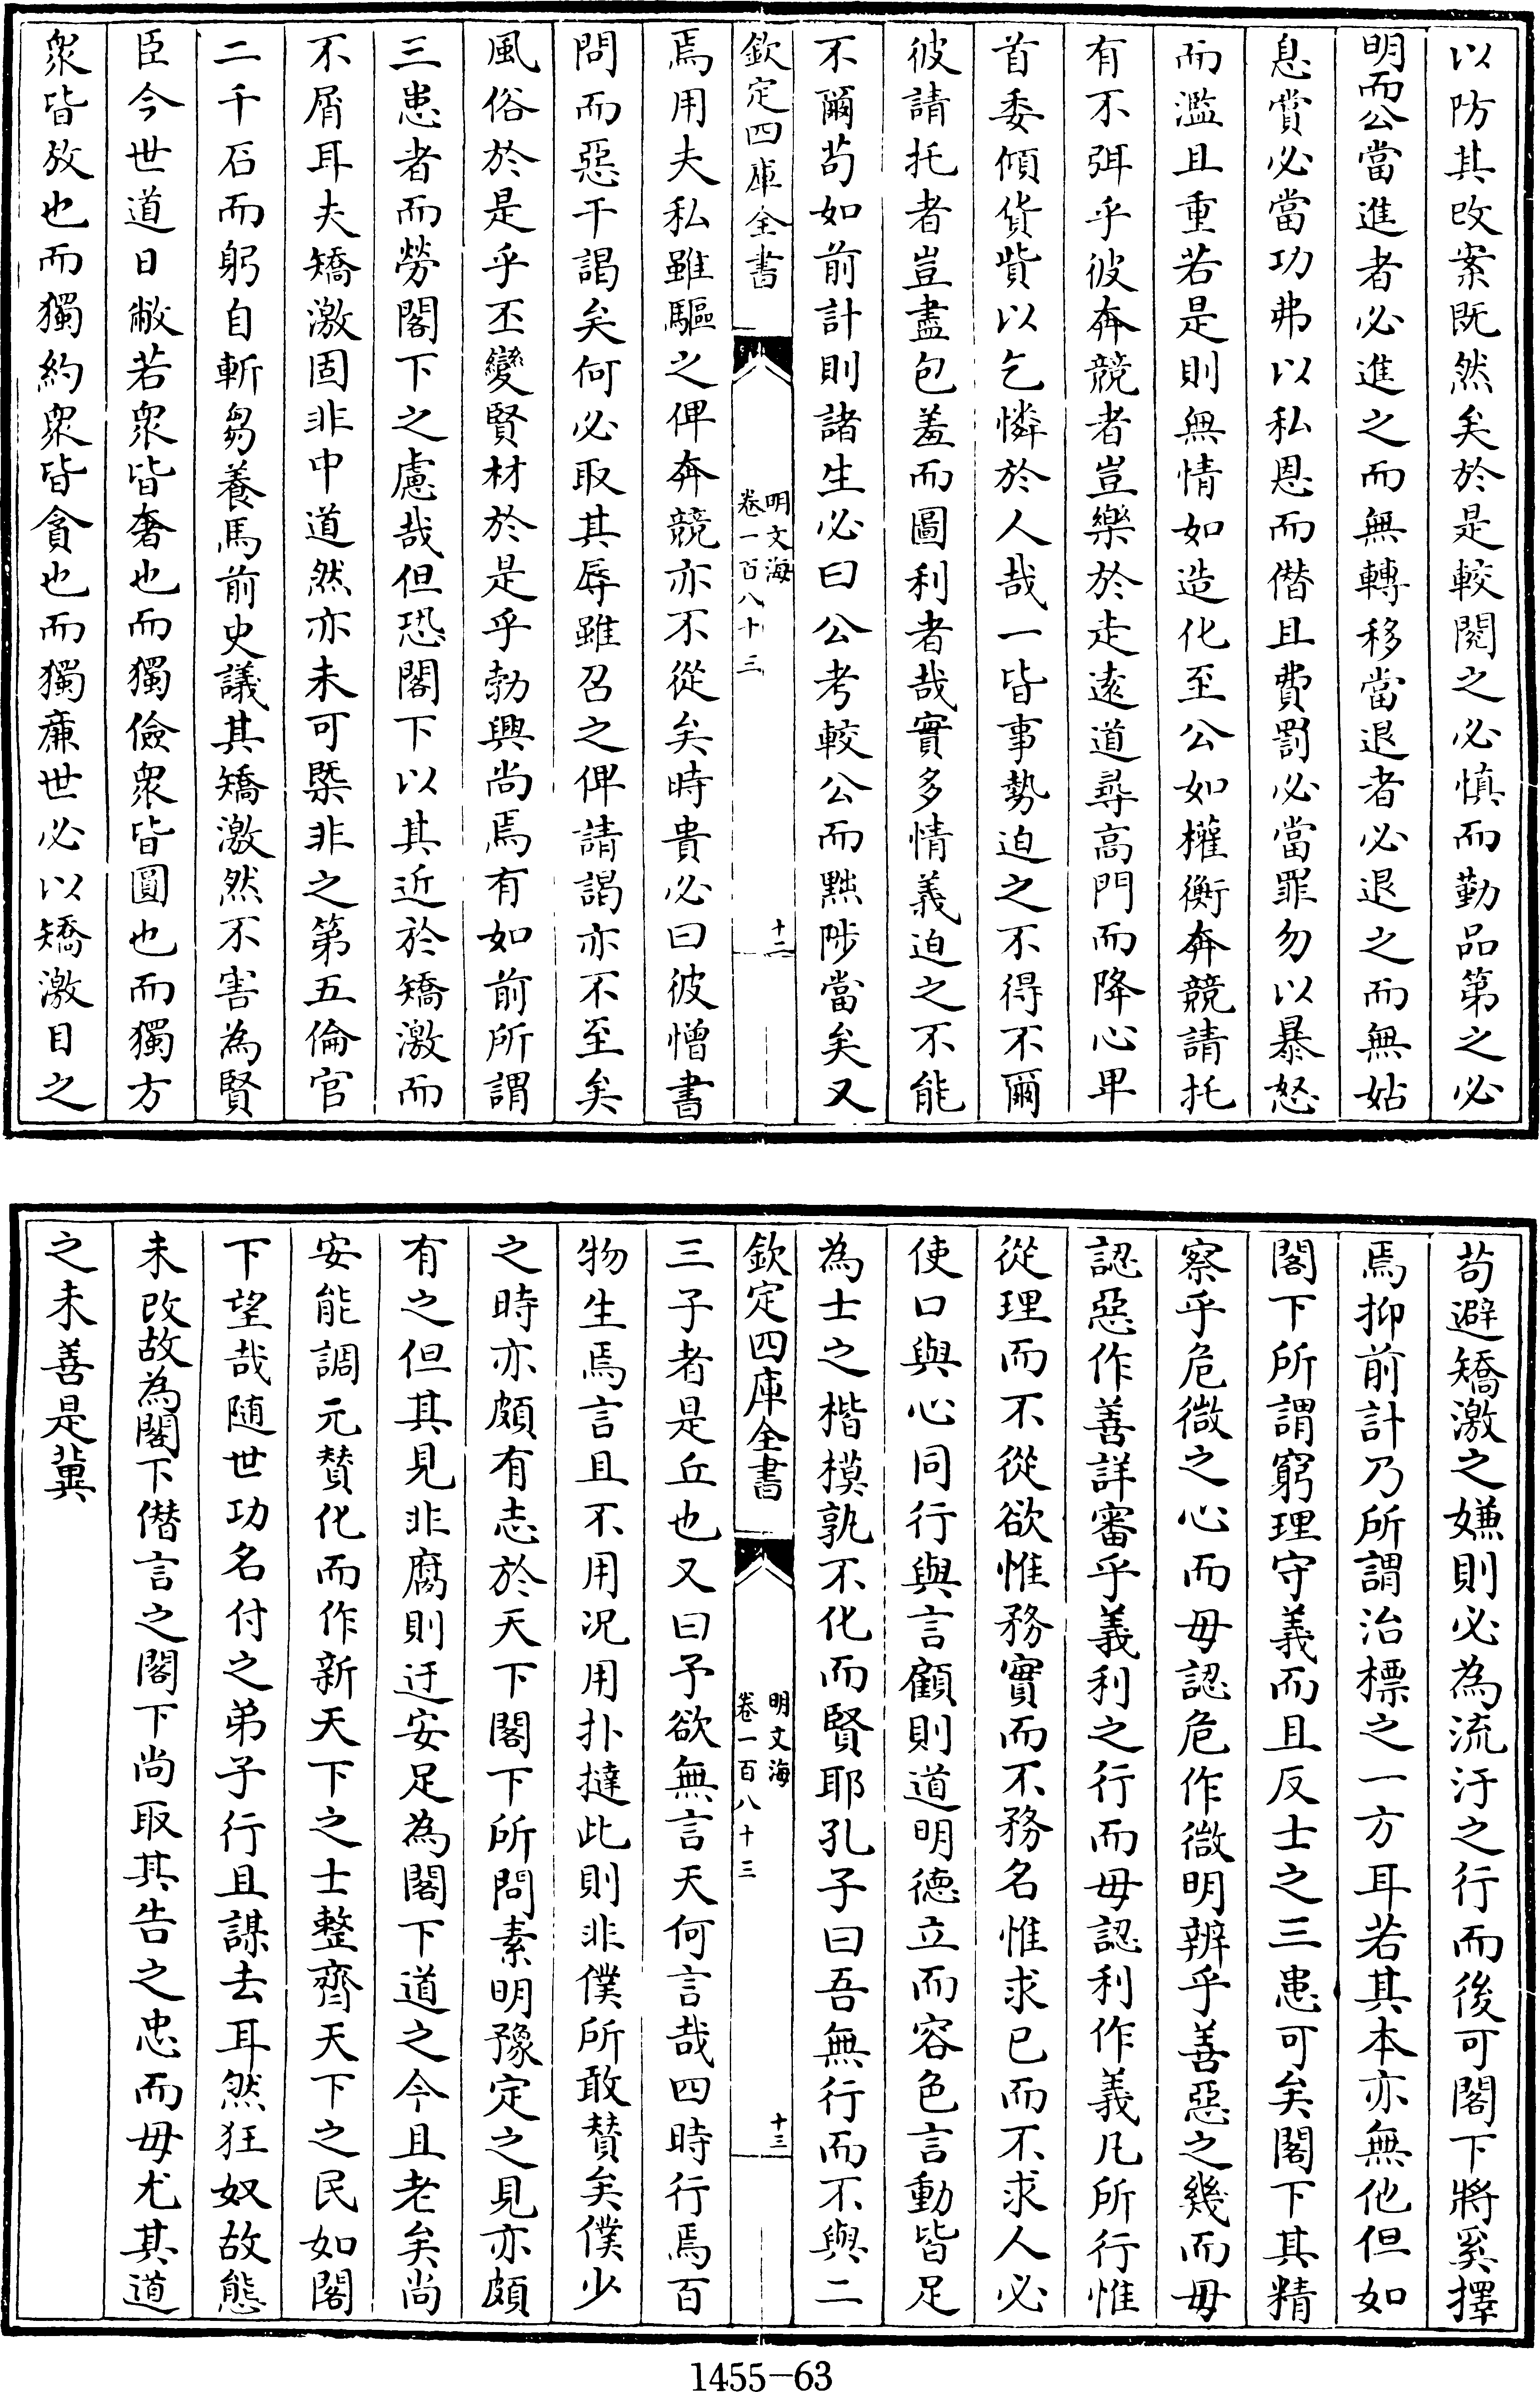 以防其改案既然矣於是較閱之必慎而勤品第之必
明而公當進者必進之而無轉移當退者必退之而無姑
息賞必當功弗以私恩而僭且費罰必當罪勿以暴怒
而濫且重若是則無情如造化至公如權衡奔競請托
有不弭乎彼奔競者豈樂於走遠道尋高門而降心卑
首委傾貨貲以乞憐於人哉一皆事勢迫之不得不爾
彼請托者豈盡包羞而圖利者哉實多情義迫之不能
不爾苟如前計則諸生必曰公考較公而黜陟當矣又
欽定四庫全書
明文海
卷一百八十三
十二
焉用夫私雖驅之俾奔競亦不從矣時貴必曰彼憎書
問而惡干謁矣何必取其辱雖召之俾請謁亦不至矣
風俗於是乎丕變賢材於是乎勃興尚焉有如前所謂
三患者而勞閣下之慮哉但恐閣下以其近於矯激而
不屑耳夫矯激固非中道然亦未可槩非之第五倫官
二千石而躬自斬芻養馬前史議其矯激然不害為賢
臣今世道日敝若衆皆奢也而獨儉衆皆圓也而獨方
衆皆放也而獨約衆皆貪也而獨廉世必以矯激目之
苟避矯激之嫌則必為流汙之行而後可閣下將奚擇
焉抑前計乃所謂治標之一方耳若其本亦無他但如
閣下所謂窮理守義而且反士之三患可矣閣下其精
察乎危微之心而毋認危作微明辨乎善惡之幾而毋
認惡作善詳審乎義利之行而毋認利作義凡所行惟
從理而不從欲惟務實而不務名惟求已而不求人必
使口與心同行與言顧則道明德立而容色言動皆足
為士之楷模孰不化而賢耶孔子曰吾無行而不與二
欽定四庫全書
明文海
卷一百八十三
十三
三子者是丘也又曰予欲無言天何言哉四時行焉百
物生焉言且不用况用扑撻此則非僕所敢贊矣僕少
之時亦頗有志於天下閣下所問素明豫定之見亦頗
有之但其見非腐則迂安足為閣下道之今且老矣尚
安能調元贊化而作新天下之士整齊天下之民如閣
下望哉随世功名付之弟子行且謀去耳然狂奴故態
未改故為閣下僭言之閣下尚取其告之忠而毋尤其道
之未善是冀
1455-63